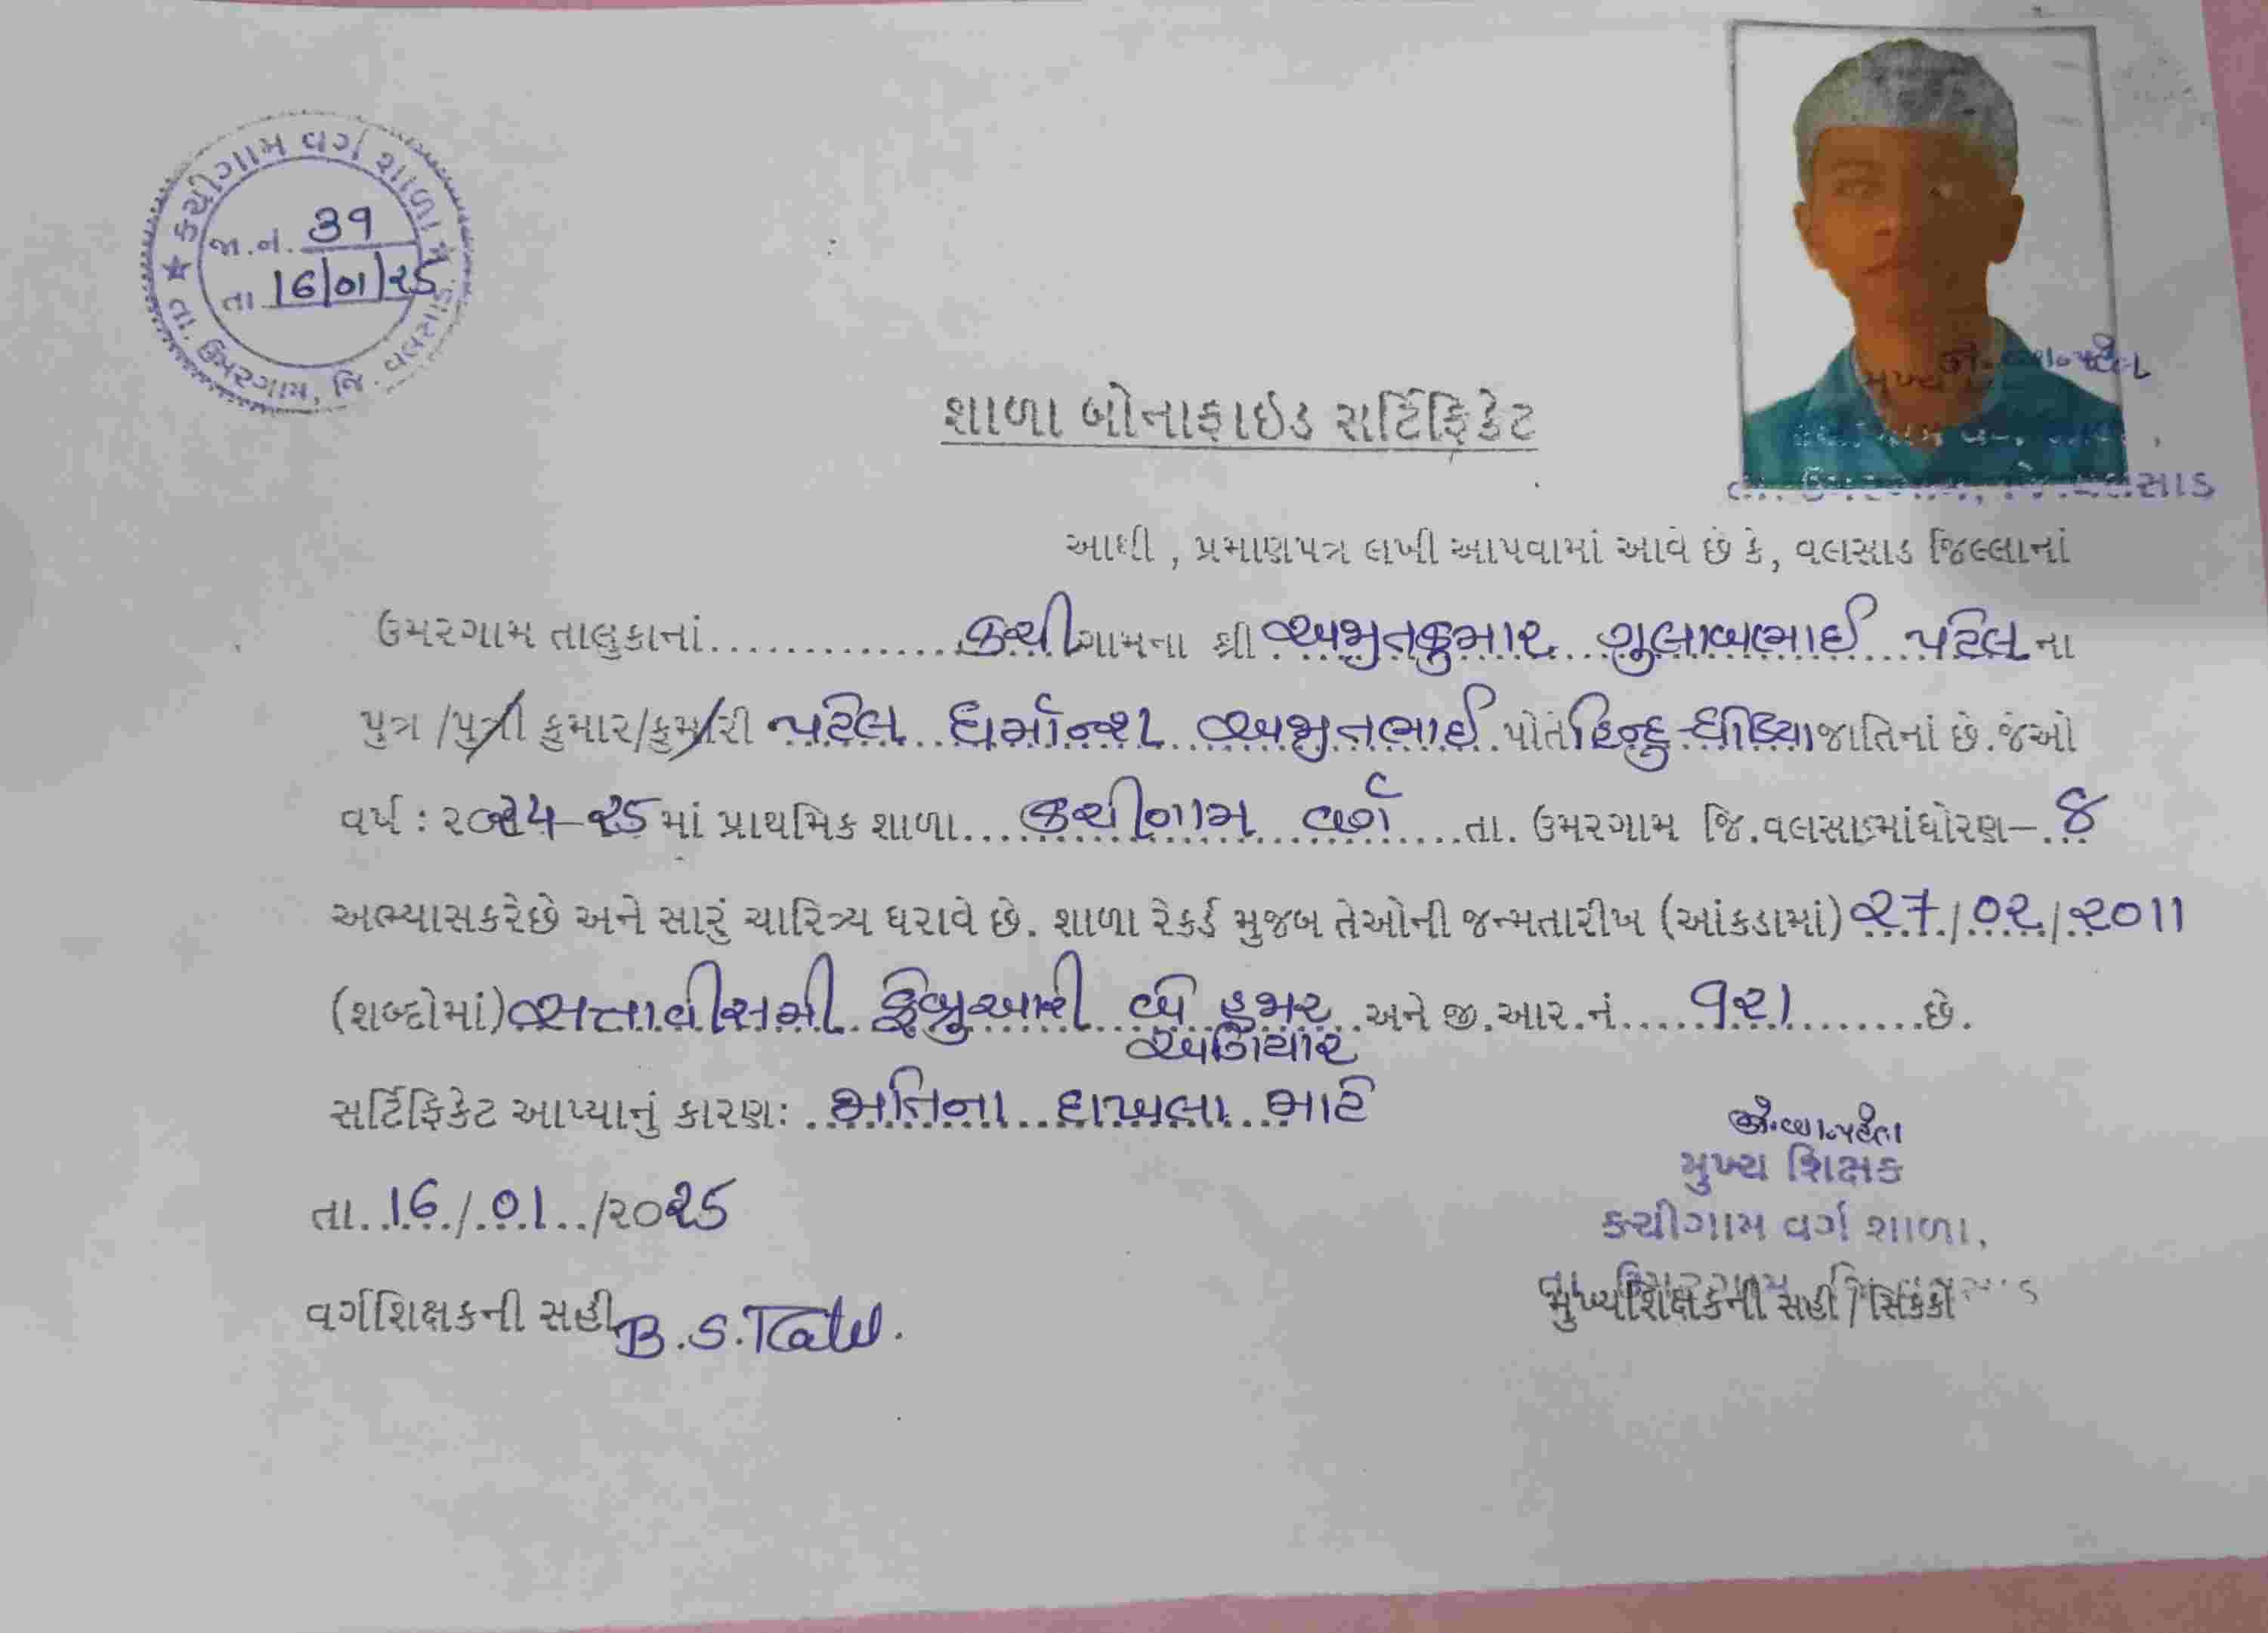 ★ કચીગામ વર્ગ શાળા ★
તા. ઉમરગામ, જિ. વલસાડ.
જા.નં. 31
તા 16/01/25
શાળા બોનાફાઇડ સર્ટિફિકેટ
આથી , પ્રમાણપત્ર લખી આપવામાં આવે છે કે, વલસાડ જિલ્લાનાં
ઉમરગામ તાલુકાનાં................કચીગામના શ્રી અમૃતકુમાર ગુલાબભાઈ પટેલ ના
પુત્ર /પુત્રી કુમાર/કુમારી પટેલ ધર્માન્શ અમૃતભાઈ પોતે હિન્દુ-ધોડિયા જાતિનાં છે.જેઓ
વર્ષ : ૨૦૨4-૨5 માં પ્રાથમિક શાળા...કચીગામ વર્ગ....તા. ઉમરગામ જિ.વલસાડમાંધોરણ–.8
અભ્યાસકરેછે અને સારું ચારિત્ર્ય ધરાવે છે. શાળા રેકર્ડ મુજબ તેઓની જન્મતારીખ (આંકડામાં) ૨7/૦૨/૨૦11
(શબ્દોમાં) સત્તાવીસમી ફેબ્રુઆરી બે હજાર અને જી.આર.નં.....૧૨1.........છે.
અગિયાર
સર્ટિફિકેટ આપ્યાનું કારણ: જાતિના દાખલા માટે
તા. 16/.01../૨૦૨5
મુખ્ય શિક્ષક
કચીગામ વર્ગ શાળા,
તા. ઉમરગામ, જિ.વલસાડ
વર્ગશિક્ષકની સહી B.S.Patel.
મુખ્યશિક્ષકની સહી / સિક્કો